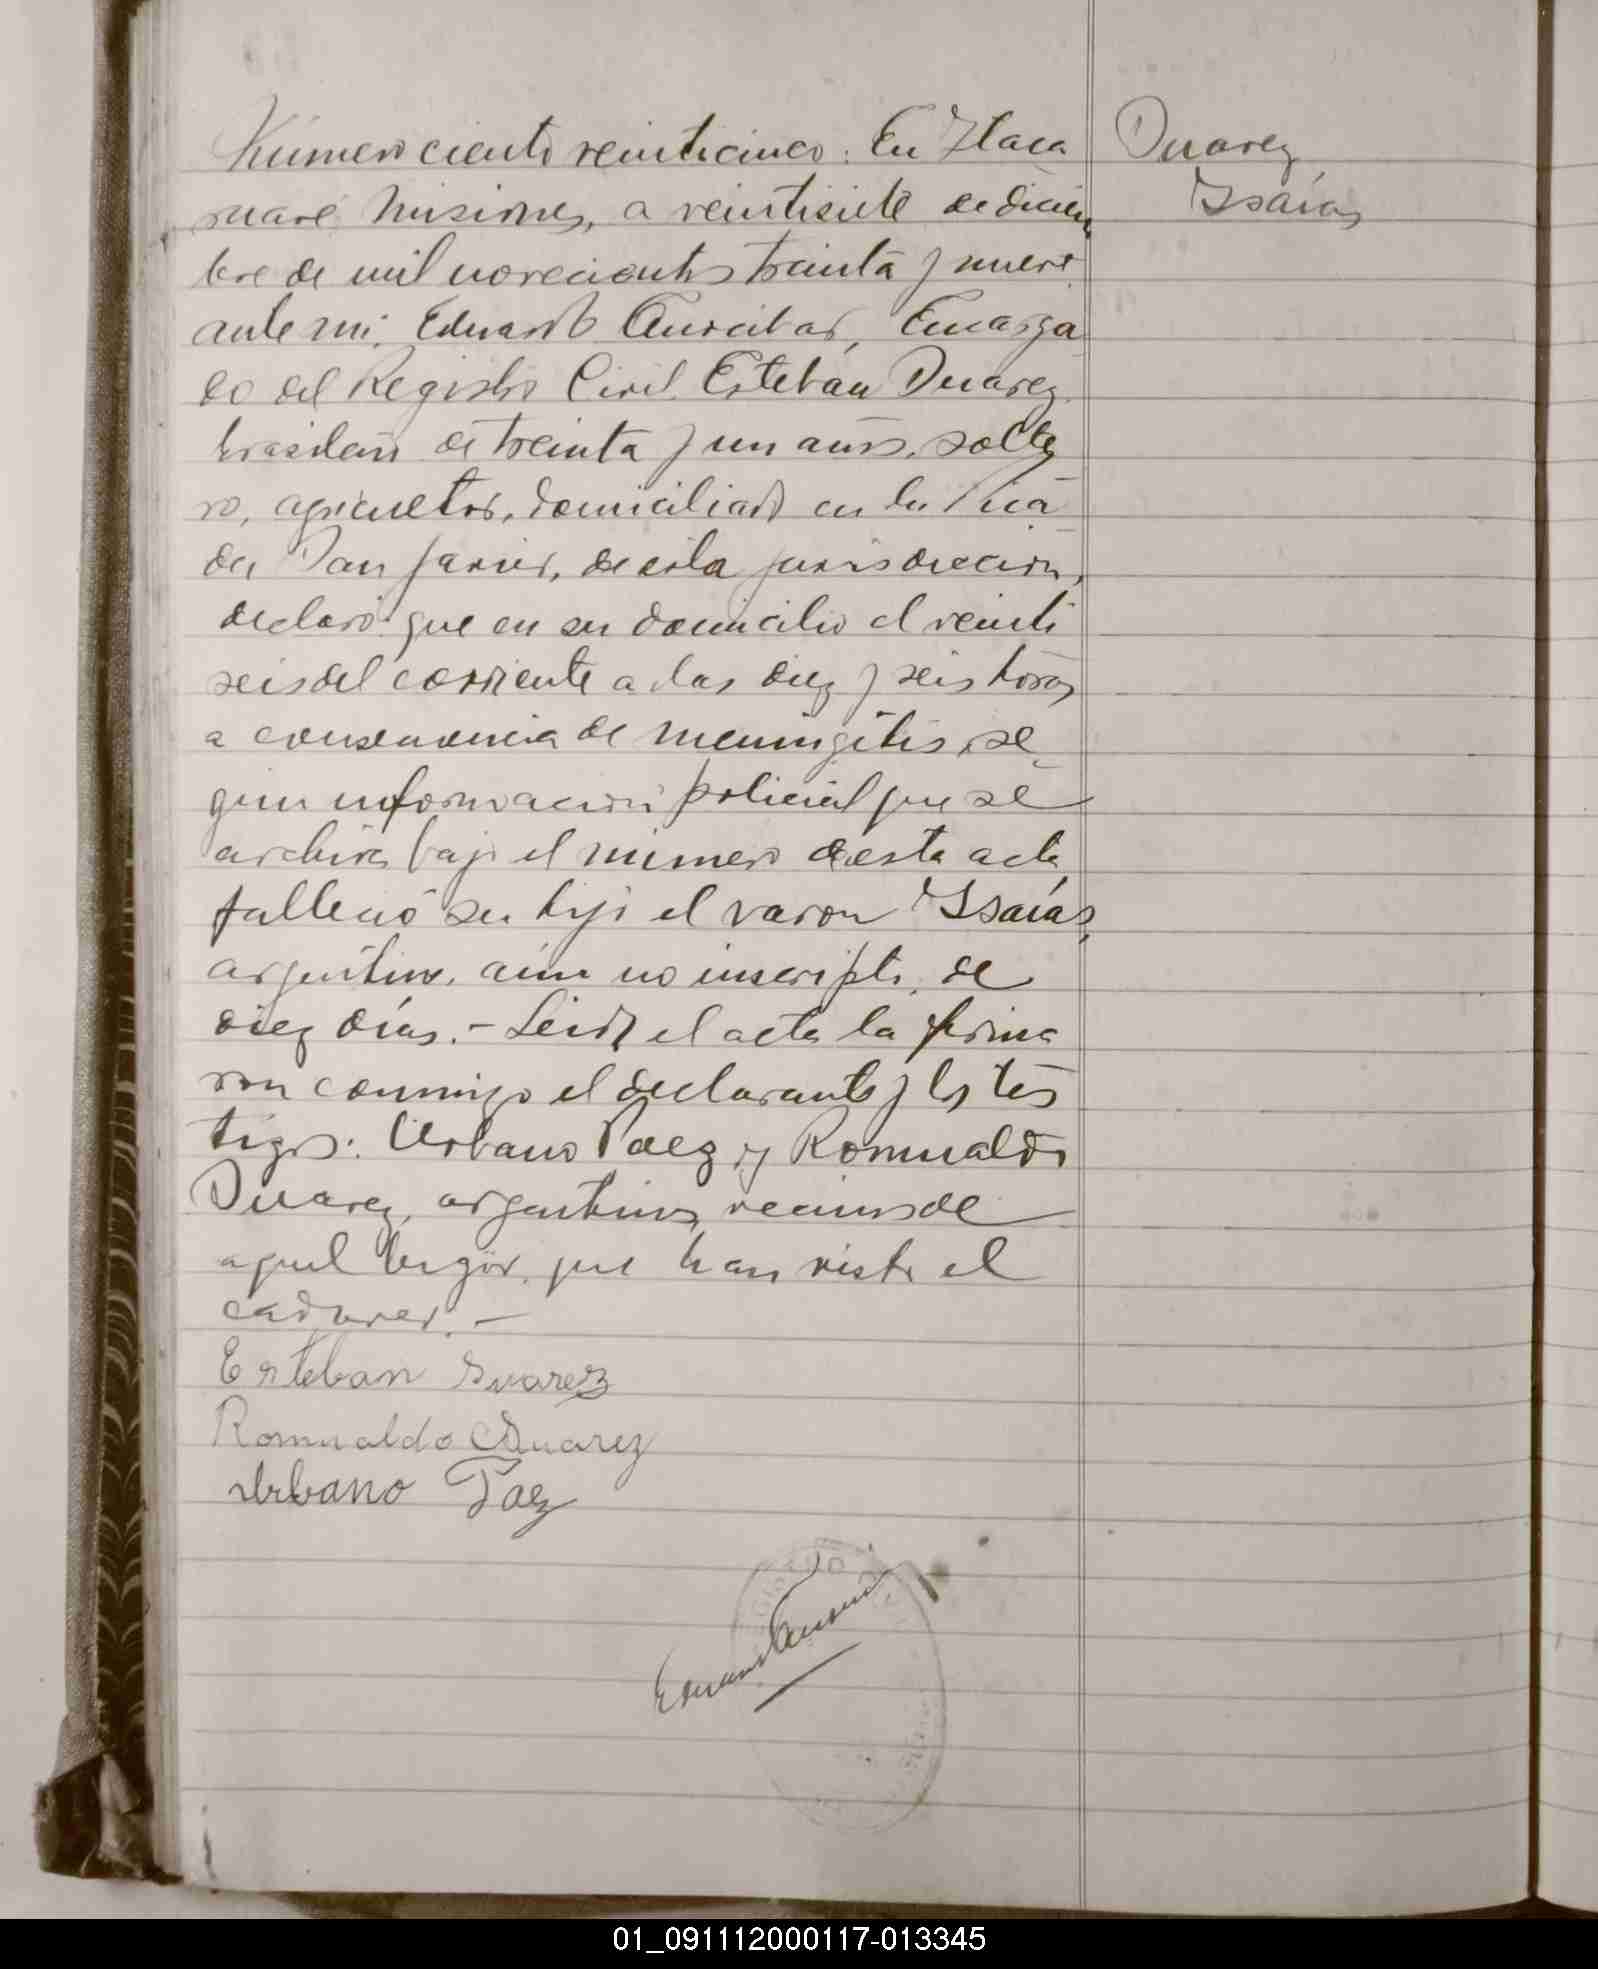 Número ciento veinticinco: En Itaca
ruaré Misiones, a veintisiete de diciem
bre de mil novecientos treinta y nueve
ante mi, Eduardo Encarga
do del Registro Civil, Esteban Suarez,
brasileño de treinta y un años, solte
ro, agricultor, domiciliado en la Pica
da San Javier, de esta jurisdiccion,
declaró: que en su domicilio el veinti
seis del corriente a las diez y seis horas
a consecuencia de meningitis, se
gun informacion policial que se
archiva bajo el número de esta acta
falleció su hijo el varon Isaías,
argentino, aún no inscripto, de
diez días.- Leida el acta la firma
ron conmigo el declarante y los tes
tigos: Urbano Paez y Romualdo
Suarez, argentinos, vecinos de
aquel lugar, que han visto el
cadaver.-
Esteban Suarez
Romualdo Suarez
Urbano Paez
Suarez
Isaías
01_091112000117-013345